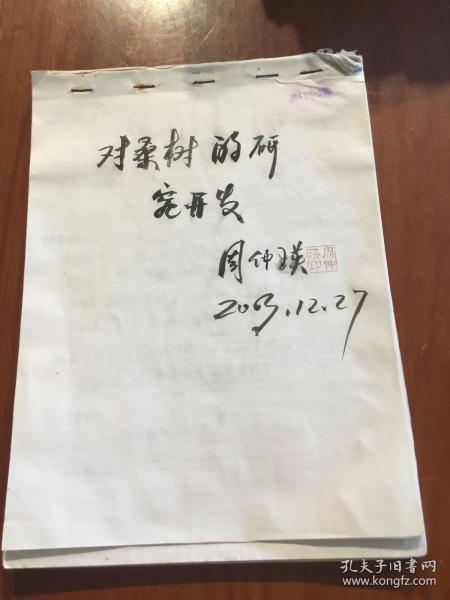 对桑树的研
究开发
周仲瑛
周仲瑛印
2003.12.27
孔夫子旧书网
www.kongfz.com